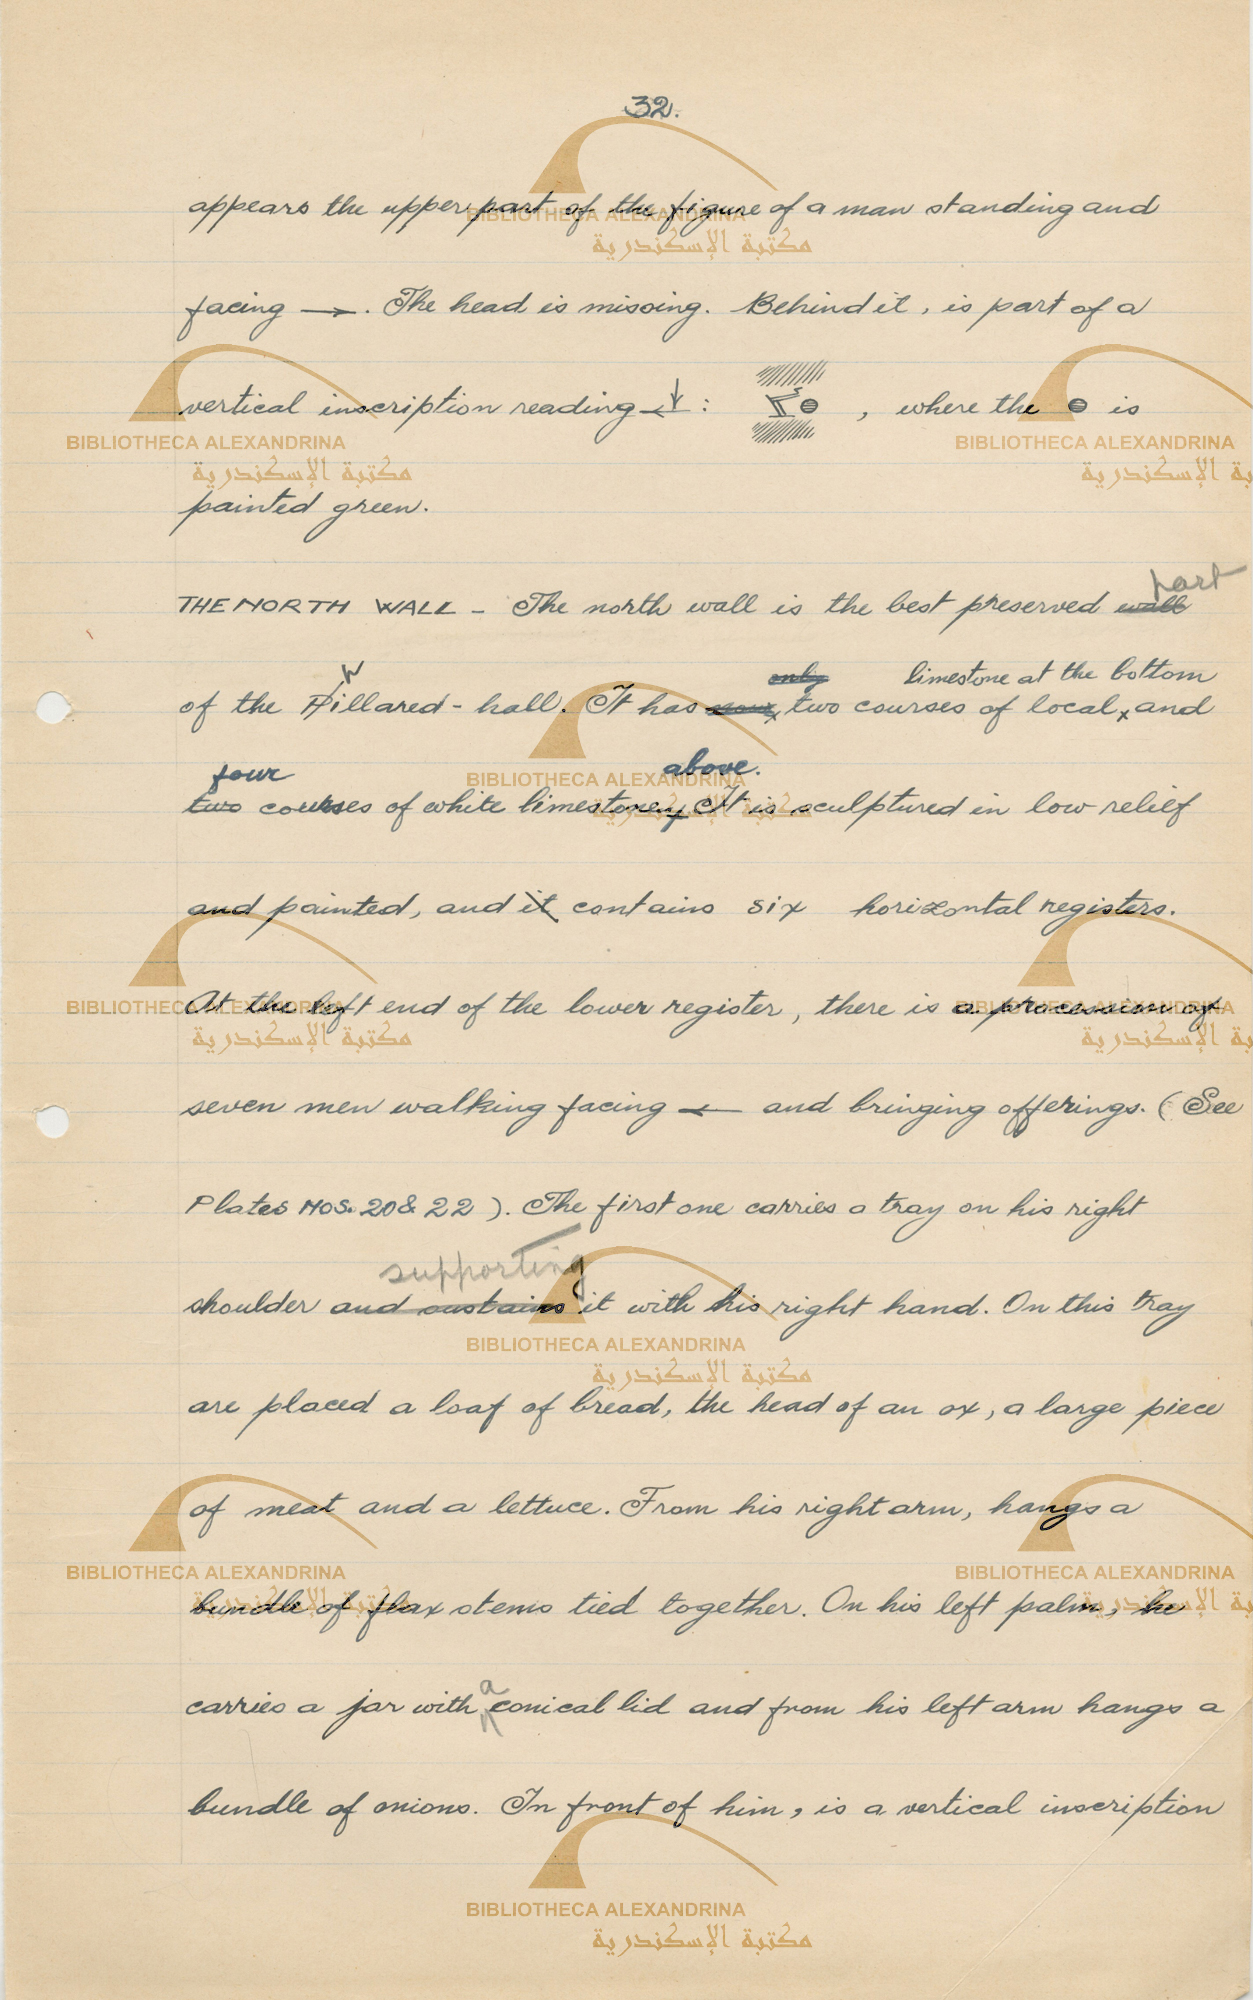 32.
appears the upper part of the figure of a man standing and
facing →. The head is missing. Behind it, is part of a
vertical inscription reading ←↓ : , where the is
painted green.
part
THE NORTH WALL - The north wall is the best preserved wall
only limestone at the bottom
of the Pillared-hall. It has two courses of local x and
four above.
two courses of white limestone. It is sculptured in low relief
and painted, and it contains six horizontal registers.
At the left end of the lower register, there is a procession of
seven men walking facing ← and bringing offerings. (See
Plates NOS. 20 & 22). The first one carries a tray on his right
supporting
shoulder and sustains it with his right hand. On this tray
are placed a loaf of bread, the head of an ox, a large piece
of meat and a lettuce. From his right arm, hangs a
bundle of flax stems tied together. On his left palm, he
a
carries a jar with conical lid and from his left arm hangs a
bundle of onions. In front of him, is a vertical inscription
BIBLIOTHECA ALEXANDRINA
مكتبة الإسكندرية